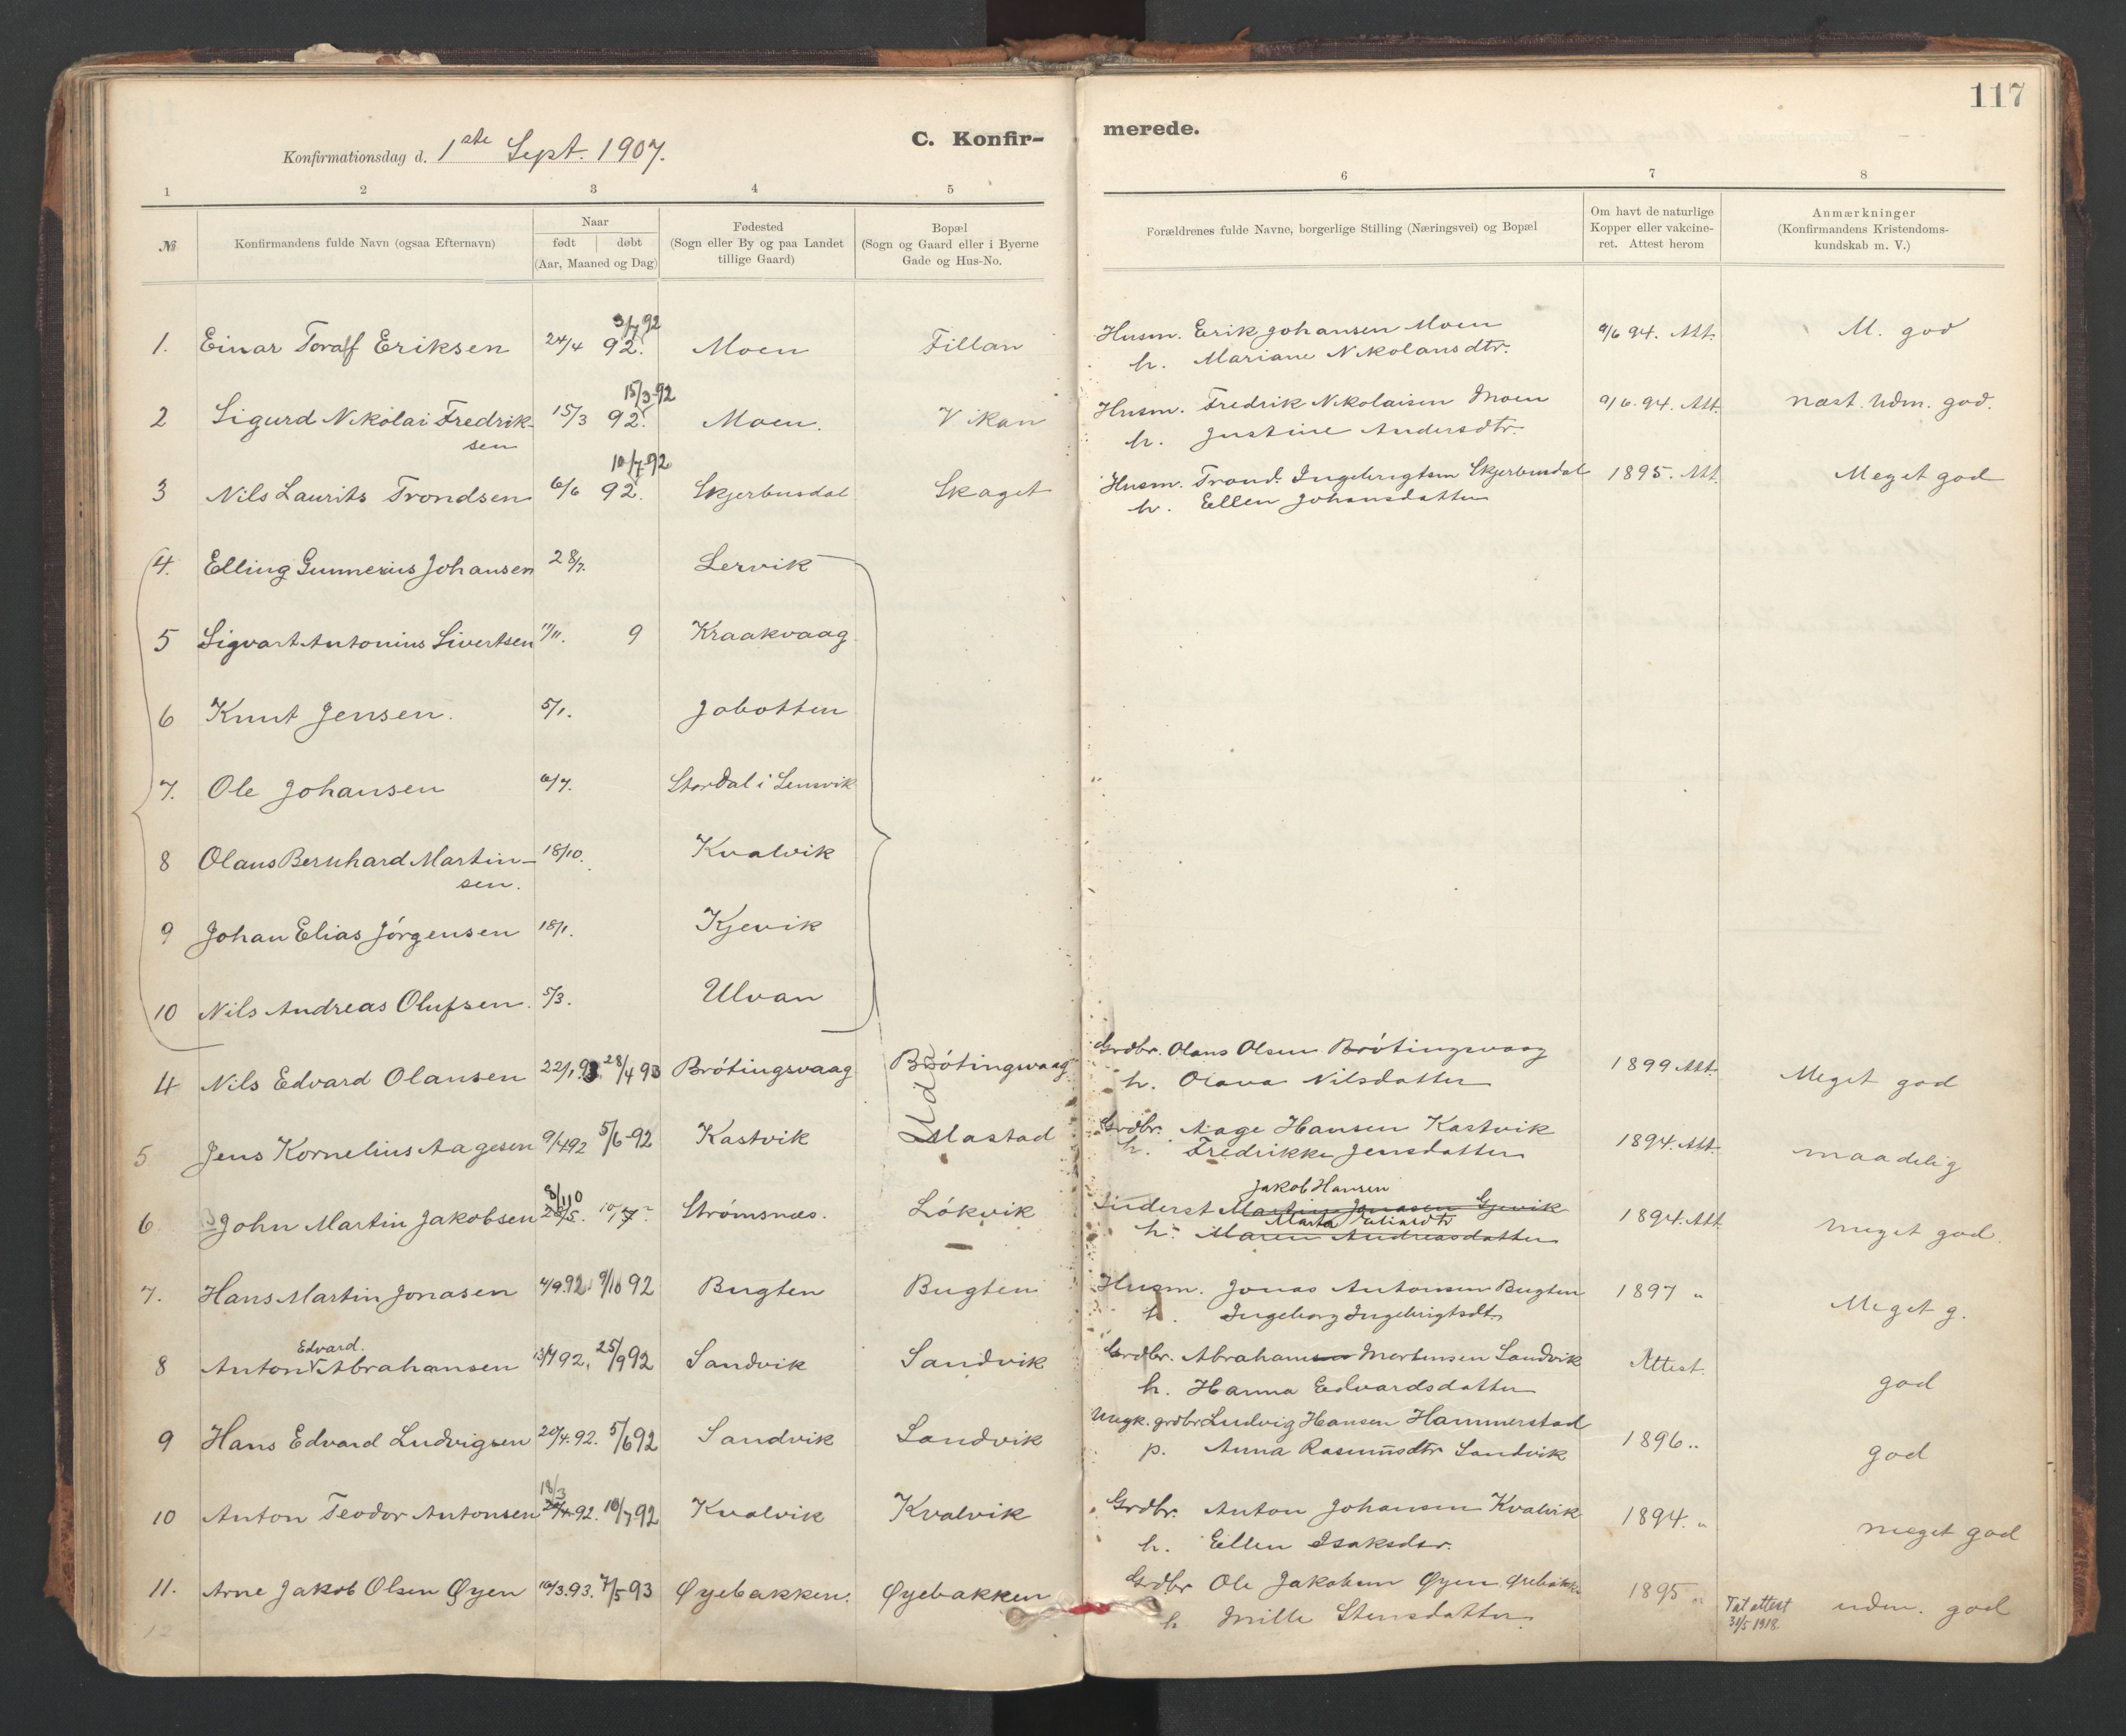 117
C. Konfir-
merede.
Konfirmationsdag d. 1ste Sept. 1907.
1 2 3 4 5 6 7 8
№ Konfirmandens fulde Navn (ogsaa Efternavn)
Naar
født døbt
(Aar, Maaned og Dag)
Fødested
(Sogn eller By og paa Landet
tillige Gaard)
Bopæl
(Sogn og Gaard eller i Byerne
Gade og Hus-No.
Forældrenes fulde Navne, borgerlige Stilling (Næringsvei) og Bopæl
Om havt de naturlige
Kopper eller vakcine-
ret. Attest herom
Anmærkninger
(Konfirmandens Kristendoms-
kundskab m. V.)
3/7 92
1. Einar Toralf Eriksen 24/4 92. Moen Fillan Husm. Erik Johansen Moen 9/6 94. Att. M. god
h. Mariane Nikolausdtr.
15/3-92
2 Sigurd Nikolai Fredrik- 15/3 92. Moen. Vikan Husm. Fredrik Nikolaisen Moen 9/6.94. Att. næst. Udm. god.
sen h. Justine Andersdtr.
10/7-92
3 Nils Laurits Trondsen 6/6 92. Skjerbusdal Skaget Husm. Trond Ingebrigtsen Skjerbusdal 1895. Att. Meget god
h. Ellen Johansdatter
4. Elling Gunnerius Johansen 28/7. Lervik
5 Sigvart Antonius Sivertsen 11/11. 9 Kraakvaag
6 Knut Jensen. 5/1. Jobotten
7. Ole Johansen 6/7. Stordal i Lensvik
8 Olaus Bernhard Martin- 18/10. Kvalvik
sen.
9 Johan Elias Jörgensen 18/1. Kjevik
10 Nils Andreas Olufsen. 5/3. Ulvan
Ud
4 Nils Edvard Olausen 22/1 93. 28/4 93 Brötingsvaag Brötingsvaag Grdbr. Olaus Olsen Brötingsvaag 1899 Att. Meget god
h. Olava Nilsdatter
5 Jens Kornelius Aagesen 9/4 92 5/6-92 Kastvik Mastad Grdbr. Aage Hansen Kastvik 1894. Att. maadelig
h. Fredrikke Jensdatter
Jakob Hansen
6. John Martin Jakobsen Strømsnæs. Lökvik Inderst Martin Jonasen Gjevik 1894. Att meget god.
Marta Eliasdtr
h. Maren Andreasdatter
7. Hans Martin Jonasen 4/9.92 9/10 92 Bugten Bugten Husm. Jonas Antonsen Bugten 1897 " Meget g.
h. Ingeborg Ingebrigtsdt.
Edvard.
8 Anton Abrahamsen 13/7 92. 25/9 92 Sandvik Sandvik Grdbr. Abrahamsen Mortensen Sandvik Attest. god
h. Hanna Edvardsdatter
9 Hans Edvard Ludvigsen 20/4.92. 5/6 92 Sandvik Sandvik Ungk. grdbr Ludvig Hansen Hammerstad 1896 " god
p. Anna Rasmusdtr Sandvik
18/3
10 Anton Teodor Antonsen 92. 10/7 92 Kvalvik Kvalvik Grdbr. Anton Johansen Kvalvik 1894. " meget god
h. Ellen Isaksdtr.
11. Arne Jakob Olsen Øyen 16/3.93. 7/5 93 Øyebakken. Øyebakken Grdbr Ole Jakobsen Øyen 1895 " udm. god
h. Mille Stensdatter
Tat attest
31/5 1918.
12